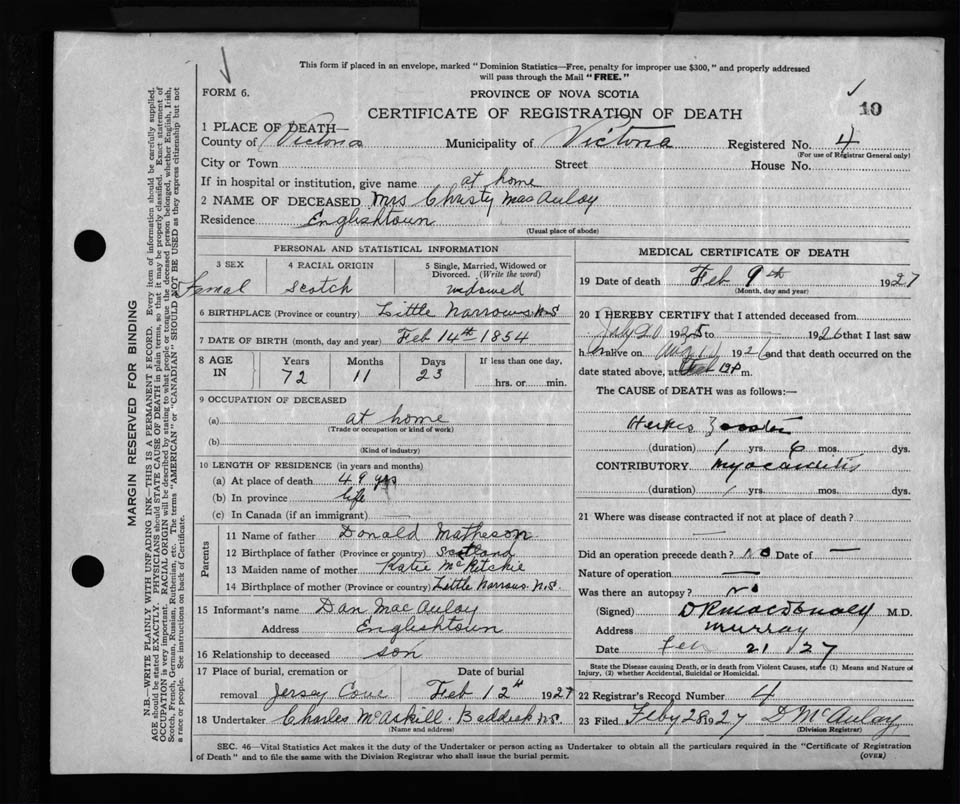 This form if placed in an envelope, marked "Dominion Statistics—Free, penalty for improper use $300," and properly addressed
will pass through the Mail "FREE."
FORM 6.
PROVINCE OF NOVA SCOTIA
10
CERTIFICATE OF REGISTRATION OF DEATH
1 PLACE OF DEATH—
County of Victoria Municipality of Victoria Registered No. 4
(For use of Registrar General only)
City or Town Street House No.
If in hospital or institution, give name at home
2 NAME OF DECEASED Mrs Christy MacAulay
Residence Englishtown
(Usual place of abode)
PERSONAL AND STATISTICAL INFORMATION
3 SEX 4 RACIAL ORIGIN 5 Single, Married, Widowed or Divorced. (Write the word)
Femal Scotch widowed
6 BIRTHPLACE (Province or country) Little Narrows N.S
7 DATE OF BIRTH (month, day and year) Feb 14th 1854
8 AGE IN Years Months Days If less than one day,
72 11 23 hrs. or min.
9 OCCUPATION OF DECEASED
(a) at home
(Trade or occupation or kind of work)
(b)
(Kind of industry)
10 LENGTH OF RESIDENCE (in years and months)
(a) At place of death 49 yrs
(b) In province life
(c) In Canada (if an immigrant)
Parents
11 Name of father Donald Matheson
12 Birthplace of father (Province or country) Scotland
13 Maiden name of mother Katie McRitchie
14 Birthplace of mother (Province or country) Little Narrows N.S.
15 Informant's name Dan MacAulay
Address Englishtown
16 Relationship to deceased son
17 Place of burial, cremation or Date of burial
removal Jersey Cove Feb 12th 1927
18 Undertaker Charles McAskill. Baddeck N.S.
(Name and address)
MEDICAL CERTIFICATE OF DEATH
19 Date of death Feb 9th 1927
(Month, day and year)
20 I HEREBY CERTIFY that I attended deceased from
July 20 1925 to 1926 that I last saw
h er alive on 192 and that death occurred on
date stated above, at m.
The CAUSE of DEATH was as follows:—
Herpes Zoster
(duration) 1 yrs. 6 mos. dys.
CONTRIBUTORY Myocarditis
(duration) 1 yrs. mos. dys.
21 Where was disease contracted if not at place of death?
—
Did an operation precede death? No Date of —
Nature of operation —
Was there an autopsy? No
(Signed) D R MacDonald M.D.
Address Murray
Date Feb 21 27
State the Disease causing Death, or in death from Violent Causes, state (1) Means and Nature of
Injury, (2) whether Accidental, Suicidal or Homicidal.
22 Registrar's Record Number 4
23 Filed Feby 28 1927 D McAulay
(Division Registrar)
SEC. 46—Vital Statistics Act makes it the duty of the Undertaker or person acting as Undertaker to obtain all the particulars required in the "Certificate of Registration
of Death" and to file the same with the Division Registrar who shall issue the burial permit. (OVER)
MARGIN RESERVED FOR BINDING
N.B.—WRITE PLAINLY WITH UNFADING INK—THIS IS A PERMANENT RECORD. Every item of information should be carefully supplied.
AGE should be stated EXACTLY. PHYSICIANS should STATE CAUSE OF DEATH in plain terms, so that it may be properly classified. Exact statement of
OCCUPATION is very important. RACIAL ORIGIN will be described by stating to what people or tongue the deceased person belonged, whether English, Irish,
Scotch, French, German, Russian, Ruthenian, etc. The terms "AMERICAN" or "CANADIAN" SHOULD NOT BE USED as they express citizenship but not
a race or people. See instructions on back of Certificate.